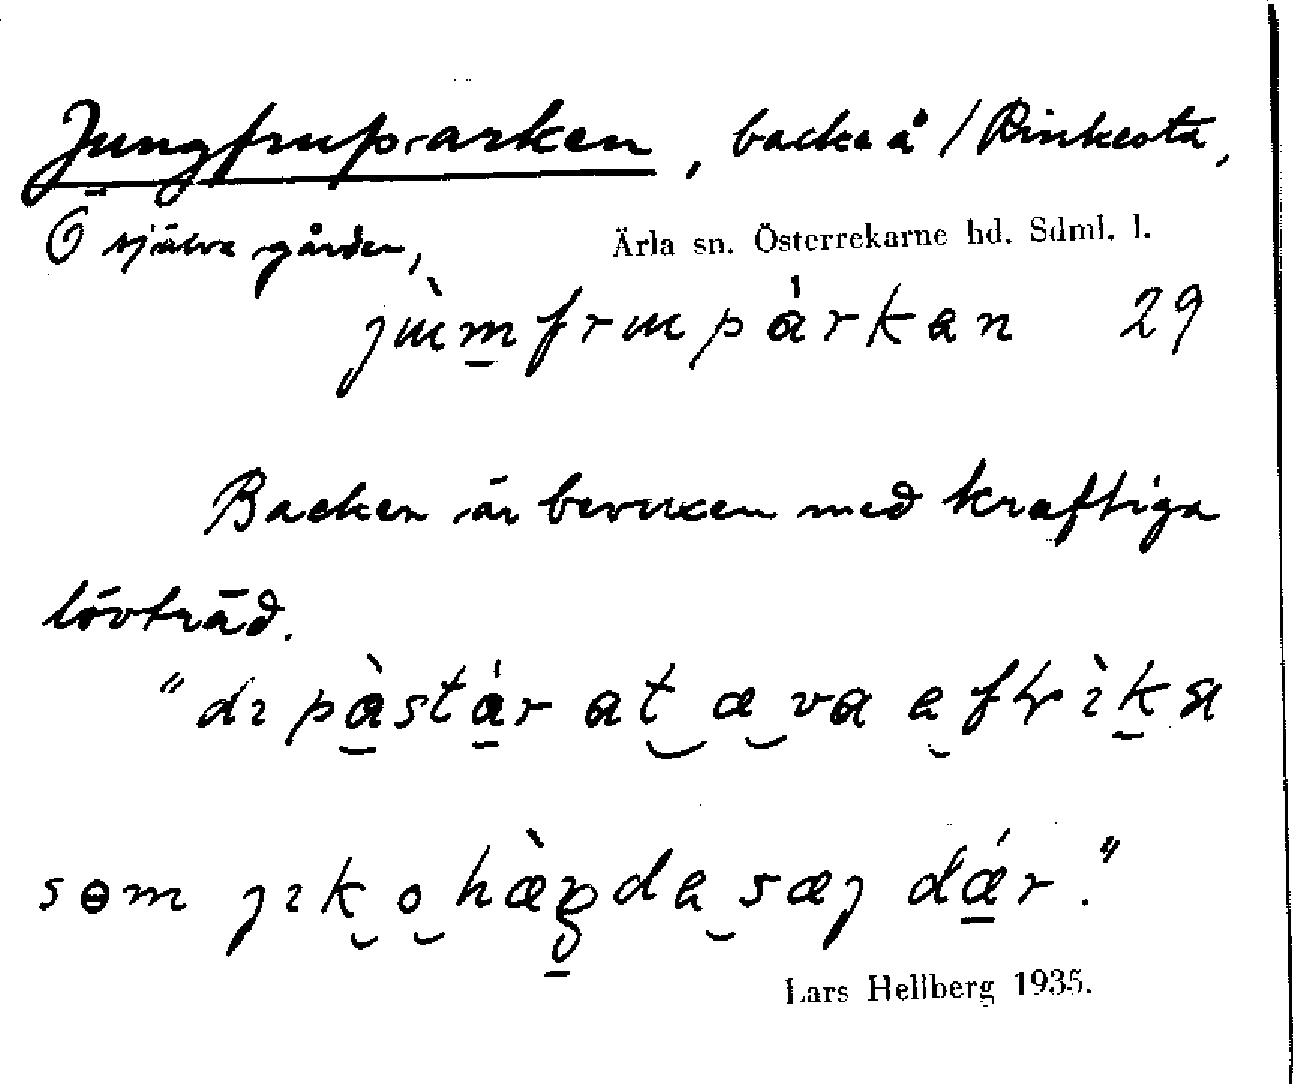 Jungfruparken, backe å / Rinkesta,
Ö själva gården, Ärla sn. Österrekarne hd. Sdml. l.
jɯ̀m̱frɯpárkan 29
Backen är bevuxen med kraftiga
lövträd.
"dı pàstár at‿æ‿va a‿frìḵa
sɵm jık‿o‿hæ̀ŋda‿sæj dǽr."
Lars Hellberg 1935.